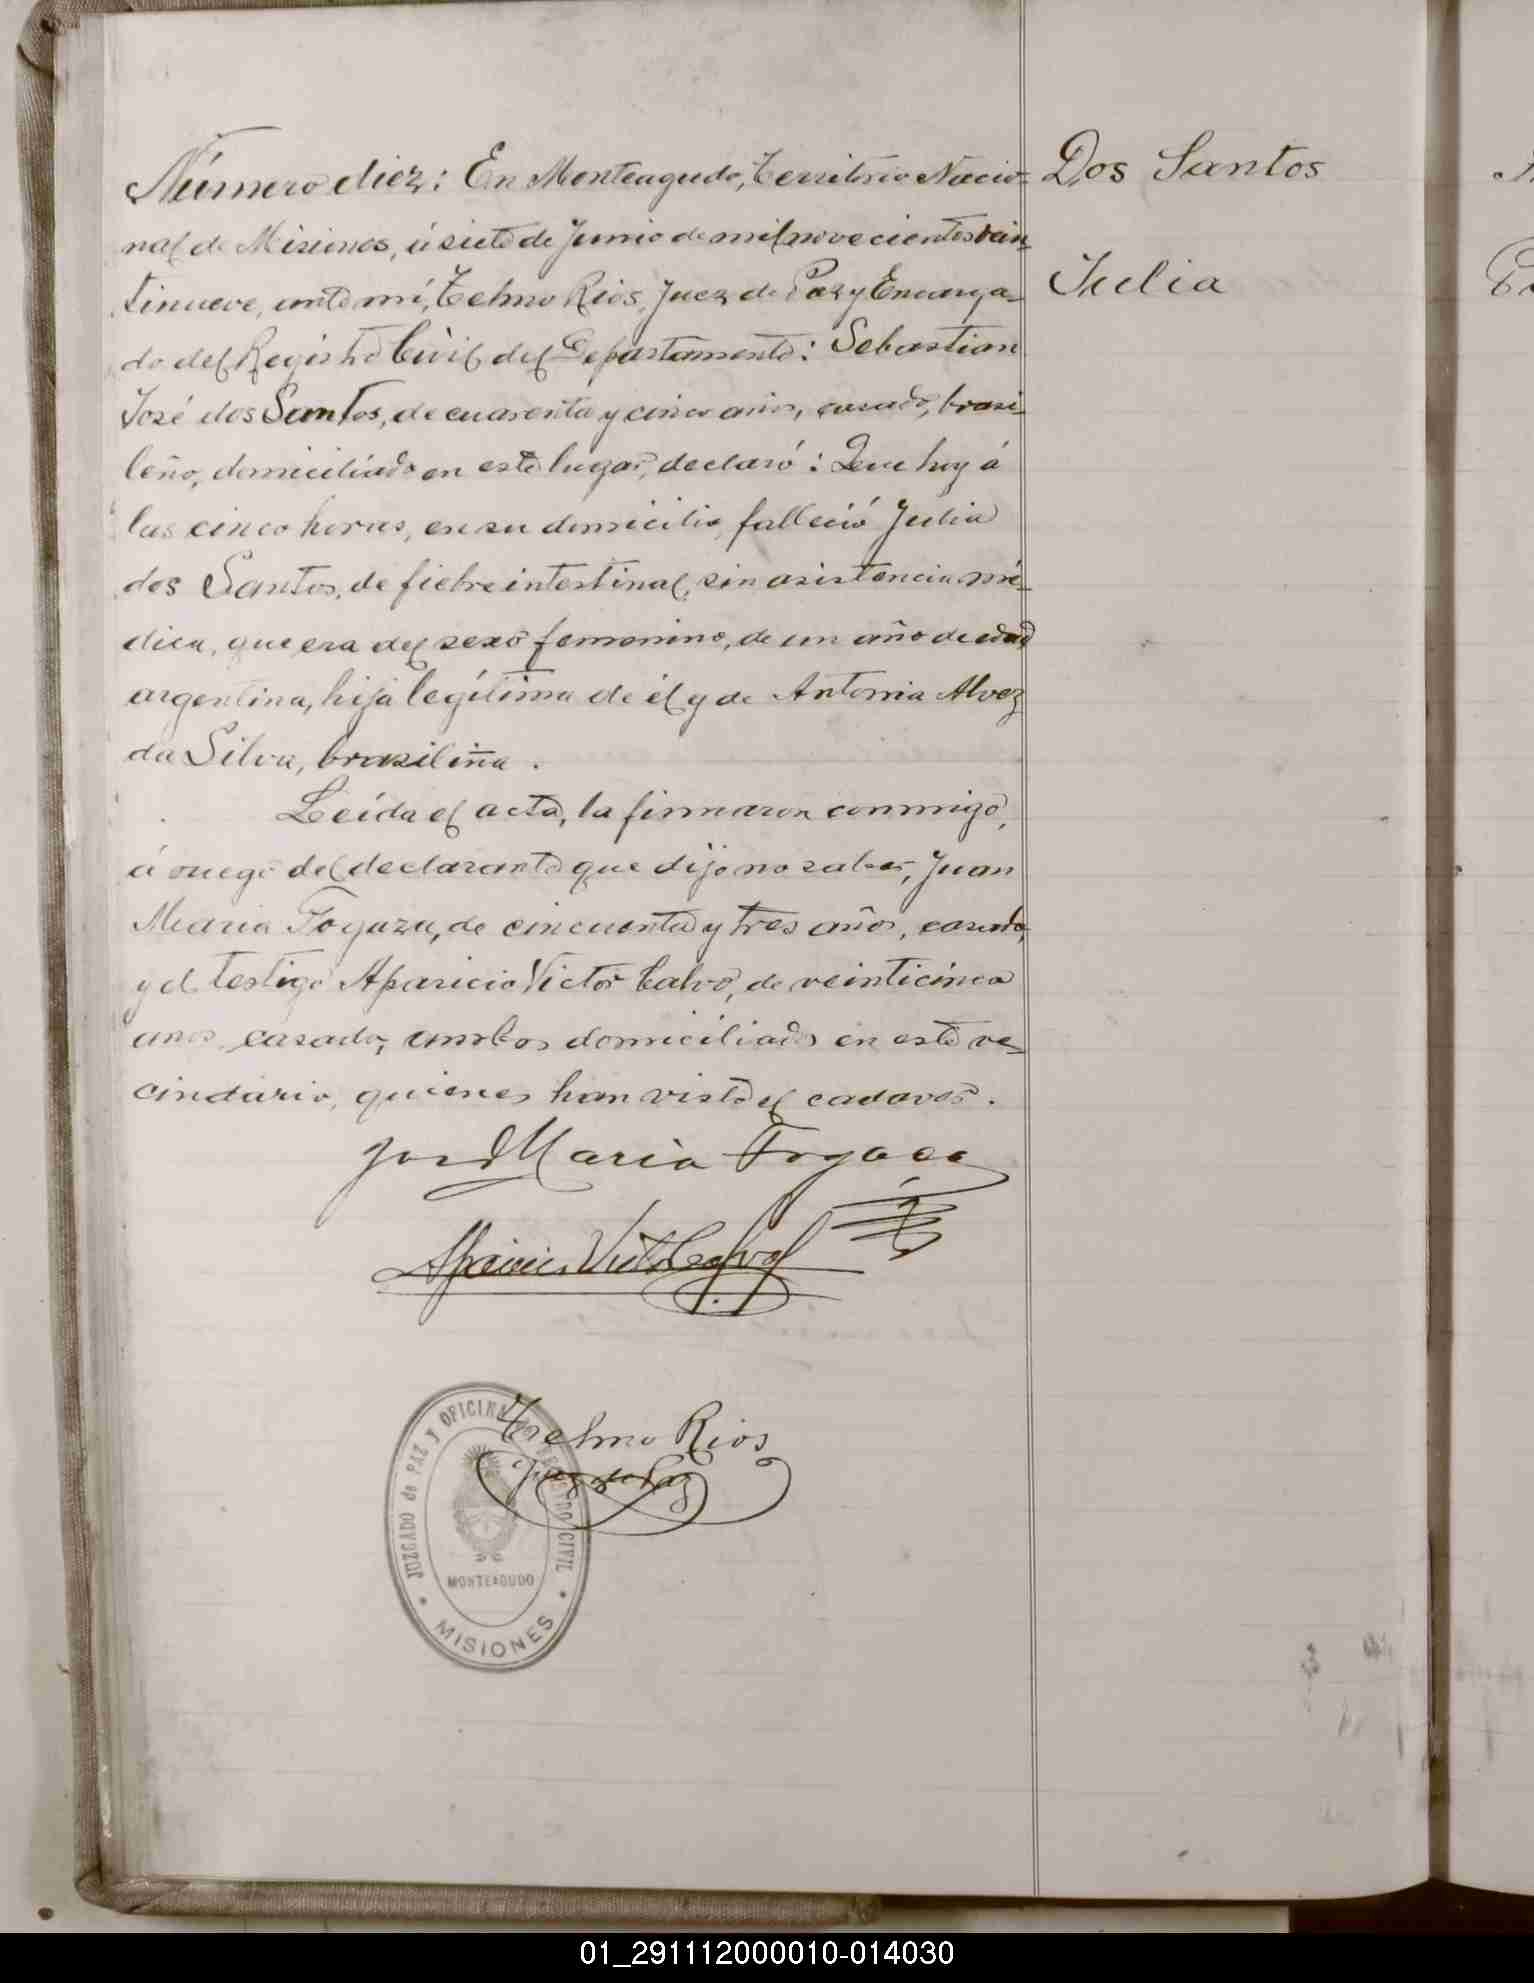 Número diez: En Monteagudo, Territorio Nacio-
nal de Misiones, á siete de Junio de mil novecientos vein-
tinueve, ante mí, Telmo Rios, Juez de Paz y Encarga-
do del Registro Civil del Departamento: Sebastian
José dos Santos, de cuarenta y cinco años, casado, brasi-
leño, domiciliado en este lugar, declaró: Que hoy á
las cinco horas, en su domicilio, falleció Julia
dos Santos, de fiebre intestinal, sin asistencia mé-
dica, que era del sexo femenino, de un año de edad
argentina, hija legítima de él y de Antonia Alvez
da Silva, brasileña.
Leída el acta, la firmaron conmigo,
á ruego del declarante que dijo no saber, Juan
Maria Fogaza, de cincuenta y tres años, casado,
y el testigo Aparicio Victor Calvo, de veinticinco
años, casado, ambos domiciliados en este ve-
cindario, quienes han visto el cadaver.
Maria Fogaca
Aparicio Victor Calvo
Telmo Rios
Juez de Paz
JUZGADO de PAZ y OFICINA DEL REGISTRO CIVIL
MONTEAGUDO
MISIONES
Dos Santos
Julia
01_291112000010-014030